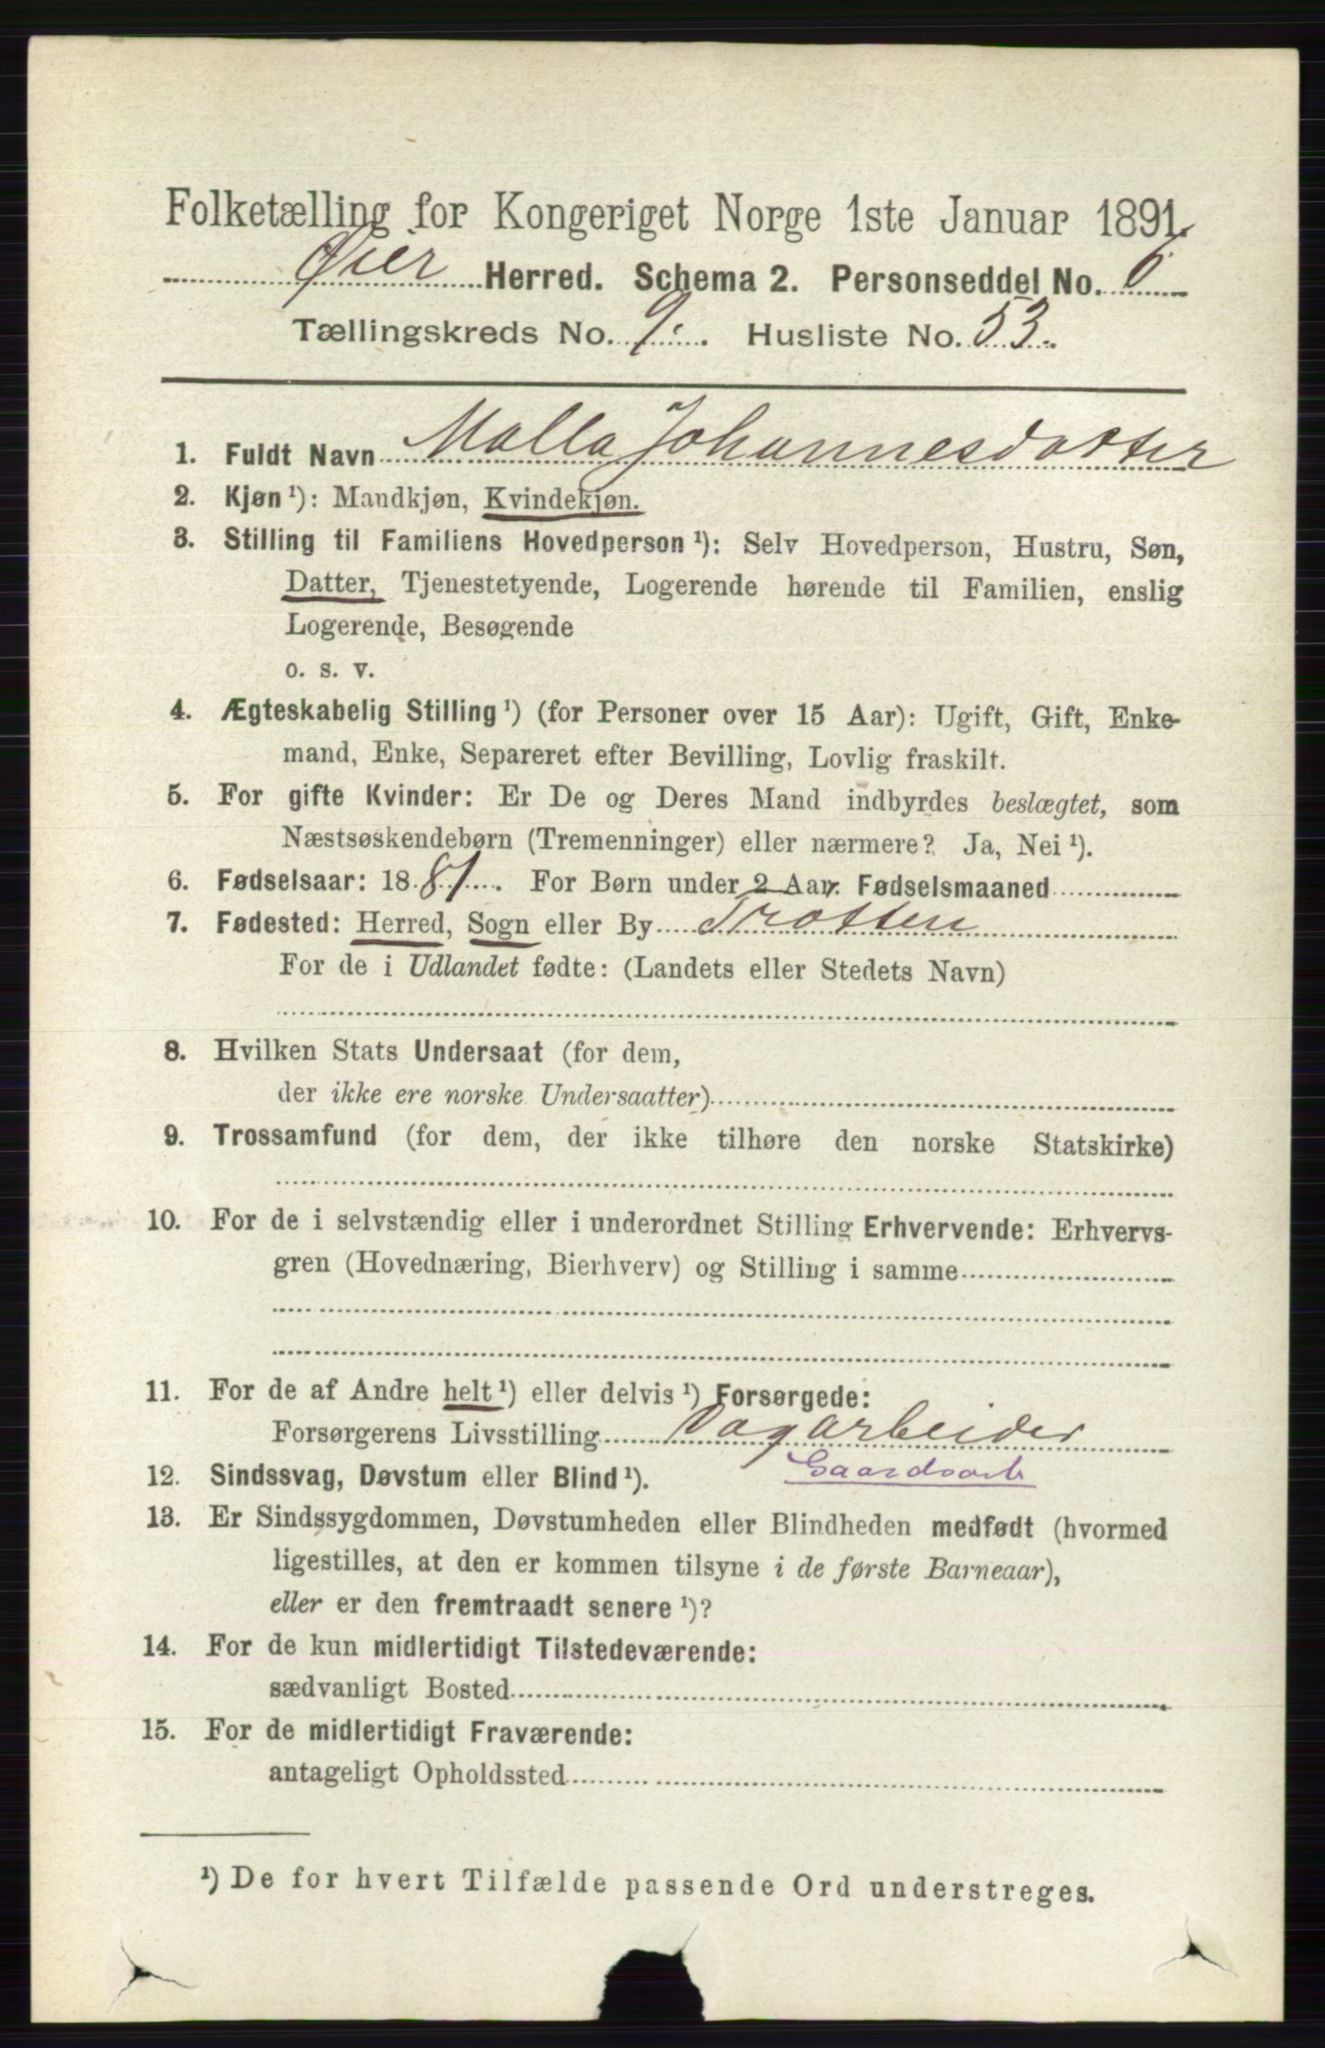 Folketælling for Kongeriget Norge 1ste Januar 1891.
Øier Herred. Schema 2. Personseddel No. 6
Tællingskreds No. 9. Husliste No. 53.
1. Fuldt Navn Malla Johannesdatter
2. Kjøn ¹): Mandkjøn, Kvindekjøn.
3. Stilling til Familiens Hovedperson ¹): Selv Hovedperson, Hustru, Søn,
Datter, Tjenestetyende, Logerende hørende til Familien, enslig
Logerende, Besøgende
o. s. v.
4. Ægteskabelig Stilling ¹) (for Personer over 15 Aar): Ugift, Gift, Enke-
mand, Enke, Separeret efter Bevilling, Lovlig fraskilt.
5. For gifte Kvinder: Er De og Deres Mand indbyrdes beslægtet, som
Næstsøskendebørn (Tremenninger) eller nærmere? Ja, Nei ¹).
6. Fødselsaar: 1881. For Børn under 2 Aar. Fødselsmaaned
7. Fødested: Herred, Sogn eller By Trotten
For de i Udlandet fødte: (Landets eller Stedets Navn)
8. Hvilken Stats Undersaat (for dem,
der ikke ere norske Undersaatter)
9. Trossamfund (for dem, der ikke tilhøre den norske Statskirke)
10. For de i selvstændig eller i underordnet Stilling Erhvervende: Erhvervs-
gren (Hovednæring, Bierhverv) og Stilling i samme
11. For de af Andre helt ¹) eller delvis ¹) Forsørgede:
Forsørgerens Livsstilling Dagarbeider
Gaardsarb
12. Sindssvag, Døvstum eller Blind ¹).
13. Er Sindssygdommen, Døvstumheden eller Blindheden medfødt (hvormed
ligestilles, at den er kommen tilsyne i de første Barneaar),
eller er den fremtraadt senere ¹)?
14. For de kun midlertidigt Tilstedeværende:
sædvanligt Bosted
15. For de midlertidigt Fraværende:
antageligt Opholdssted
¹) De for hvert Tilfælde passende Ord understreges.